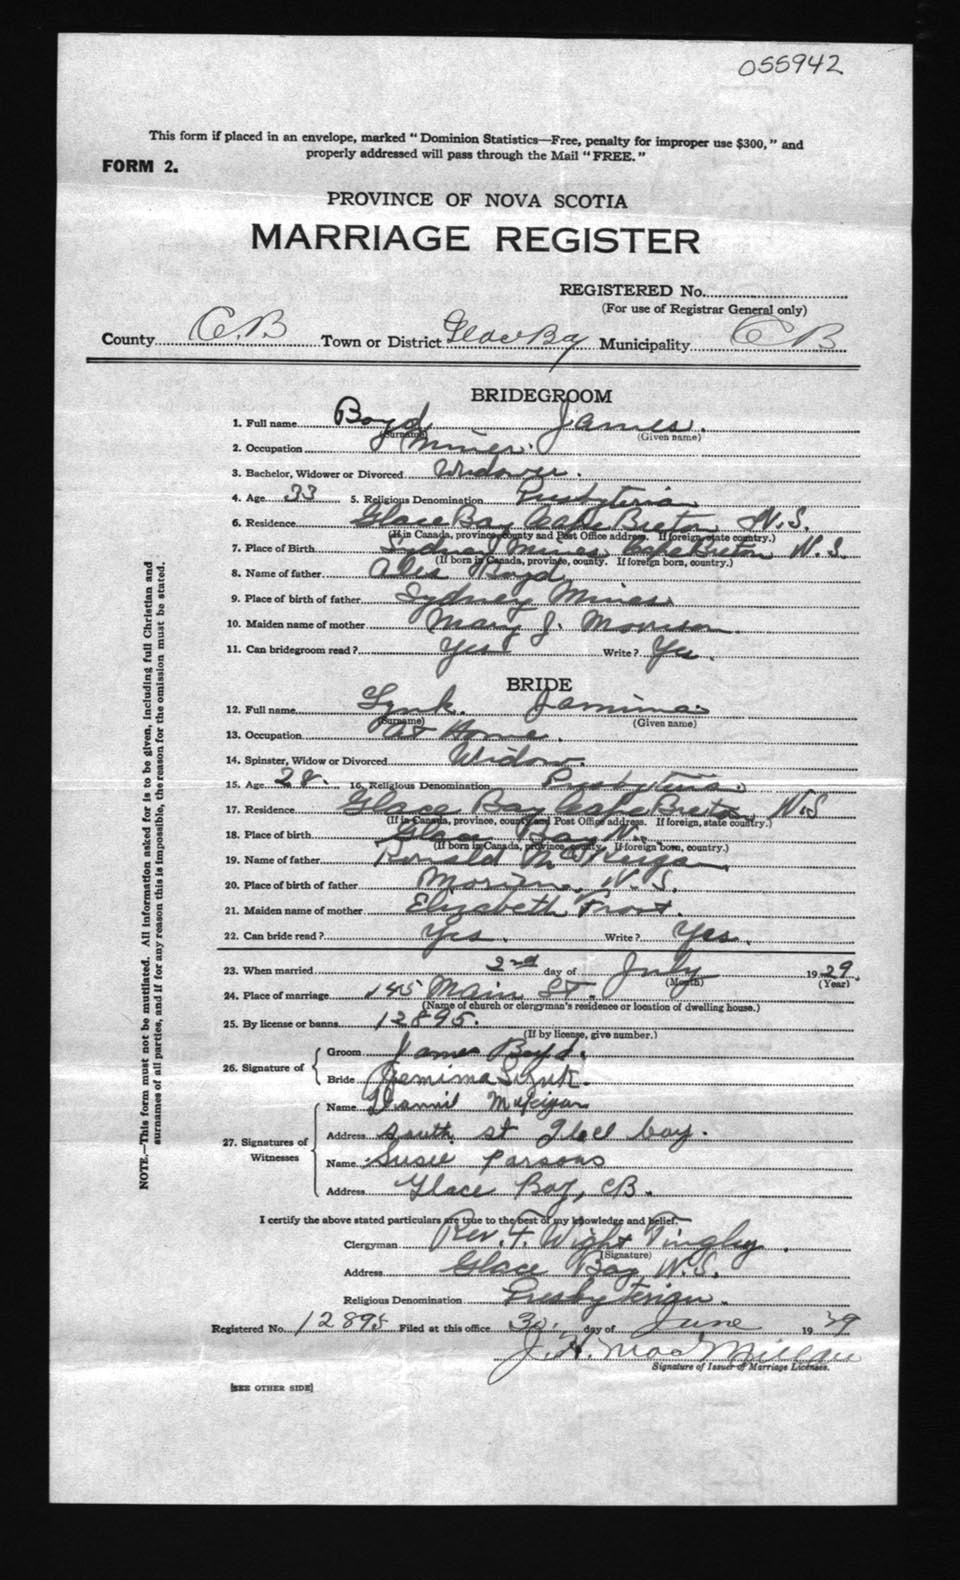 055942
This form if placed in an envelope, marked "Dominion Statistics—Free, penalty for improper use $300," and
properly addressed will pass through the Mail "FREE."
FORM 2.
PROVINCE OF NOVA SCOTIA
MARRIAGE REGISTER
REGISTERED No.
(For use of Registrar General only)
County C. B Town or District Glace Bay Municipality C B
BRIDEGROOM
1. Full name Boyd James.
(Surname) (Given name)
2. Occupation Miner.
3. Bachelor, Widower or Divorced Widower.
4. Age 33 5. Religious Denomination Presbyterian
6. Residence Glace Bay Cape Breton N.S.
(If in Canada, province, county and Post Office address. If foreign, state country.)
7. Place of Birth Sydney Mines Cape Breton N.S.
(If born in Canada, province, county. If foreign born, country.)
8. Name of father Alex Boyd
9. Place of birth of father Sydney Mines
10. Maiden name of mother Mary J. Morrison
11. Can bridegroom read? Yes Write? Yes.
BRIDE
12. Full name Lynk. Jamima
(Surname) (Given name)
13. Occupation At Home.
14. Spinster, Widow or Divorced Widow.
15. Age 28. 16. Religious Denomination Presbyterian
17. Residence Glace Bay Cape Breton N.S
(If in Canada, province, county and Post Office address. If foreign, state country.)
18. Place of birth Glace Bay N.
(If born in Canada, province, county. If foreign born, country.)
19. Name of father Ronald McKeigan
20. Place of birth of father Morien, N.S.
21. Maiden name of mother Elizabeth Frost.
22. Can bride read? Yes. Write? Yes.
23. When married 2nd day of July 1929
(Month) (Year)
24. Place of marriage 145 Main St.
(Name of church or clergyman's residence or location of dwelling house.)
25. By license or banns 12895.
(If by license, give number.)
26. Signature of
Groom James Boyd.
Bride Jemima Lynk.
27. Signatures of Witnesses
Name Dannil McKeigan
Address south st Glace bay.
Name Susie Parsons
Address Glace Bay, CB.
I certify the above stated particulars are true to the best of my knowledge and belief.
Clergyman Rev. F. Wight Tingley.
(Signature)
Address Glace Bay N.S.
Religious Denomination Presbyterian.
Registered No. 12895 Filed at this office 30. day of June 1929
J. H. MacMillan
Signature of Issuer of Marriage Licenses.
[SEE OTHER SIDE]
NOTE.—This form must not be mutilated. All information asked for is to be given, including full Christian and
surnames of all parties, and if for any reason this is impossible, the reason for the omission must be stated.